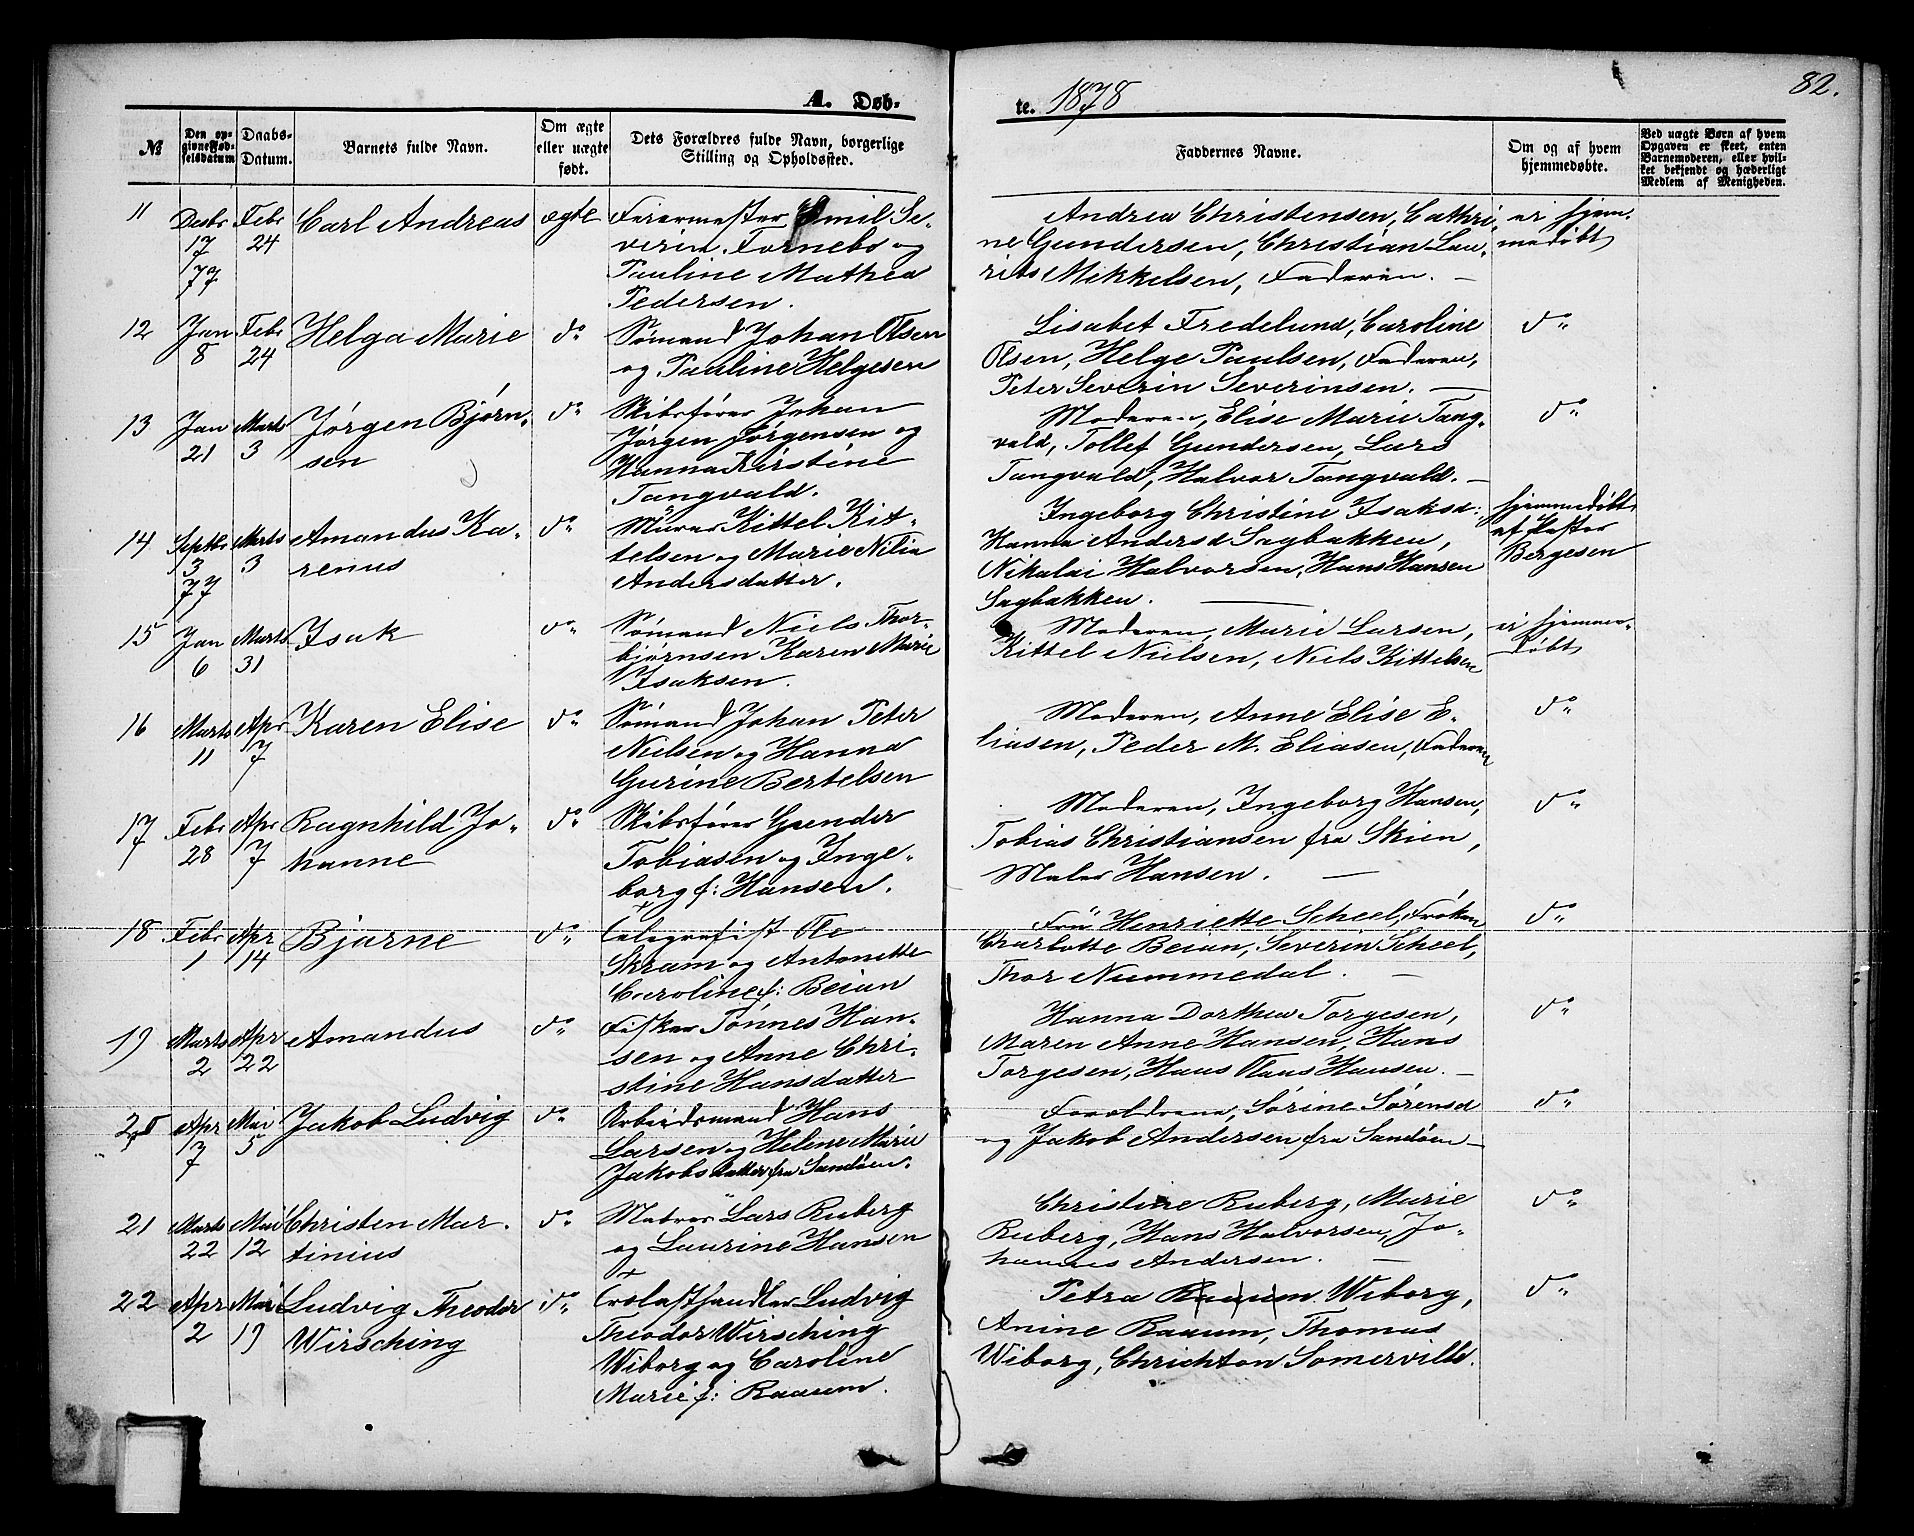 A. Døb-
te. 1878
82.
№
Den op-
givne Fød-
selsdatum
Daabs-
Datum.
Barnets fulde Navn.
Om ægte
eller uægte
født.
Dets Forældres fulde Navn, borgerlige
Stilling og Opholdssted.
Faddernes Navne.
Om og af hvem
hjemmedøbte.
Ved uægte Børn af hvem
Opgaven er skeet, enten
Barnemoderen, eller hvil-
ket bekjendt og hæderligt
Medlem af Menigheden.
11
Desbr
17
77
Febr
24
Carl Andreas
ægte
Feiermester Emil Se-
verin Fornebo og
Pauline Mathea
Pedersen.
Andrea Christensen, Cathri-
ne Gundersen, Christian Lau-
rits Mikkelsen, Faderen. —
ei hjem-
medøbt
12
Jan
8
Febr
24
Helga Marie
do
Sømand Johan Olsen
og Pauline Helgesen
Lisabet Fredelund, Caroline
Olsen, Helge Paulsen, Faderen,
Peter Severin Severinsen. —
do
13
Jan
21
Marts
3
Jørgen Bjørn-
sen
do
Skibsfører Johan
Jørgen Jørgensen og
Hanna Kirstine
Tangvald.
Moderen, Elise Marie Tang-
vald, Tollef Gundersen, Lars
Tangvald, Halvor Tangvald. —
do
14
Septbr
3
77
Marts
3
Amandus Ka-
renus
do
Murer Kittel Kit-
telsen og Marie Nilia
Andersdatter.
Ingeborg Christine Isaksd:
Hanna Andersd Sagbakken,
Nikolai Halvorsen, Hans Hansen
Sagbakken. —
hjemmedøbt
af Pastor
Bergesen
15
Jan
6
Marts
31
Isak
do
Sømand Niels Thor-
bjørnsen Karen Marie
Isaksen.
Moderen, Marie Larsen,
Kittel Nielsen, Niels Kittelsen
ei hjemme-
døbt
16
Marts
11
Apr
7
Karen Elise
do
Sømand Johan Peter
Nielsen og Hanna
Gurine Bertelsen
Moderen, Anne Elise E-
liasen, Peder M. Eliasen, Faderen
do
17
Febr
28
Apr
7
Ragnhild Jo-
hanne
do
Skibsfører Gunder
Tobiasen og Inge-
borg f: Hansen.
Moderen, Ingeborg Hansen,
Tobias Christiansen fra Skien,
Maler Hansen. —
do
18
Febr
1
Apr
14
Bjarne
do
Telegrafist Ole
Skram og Antonette
Caroline f: Beian
Frü Henriette Scheel, Frøken
Charlotte Beian, Severin Scheel,
Thor Nummedal. —
do
19
Marts
2
Apr
22
Amandus
do
Fisker Tønnes Han-
sen og Anne Chri-
stine Hansdatter
Hanna Dorthea Torgesen,
Maren Anne Hansen, Hans
Torgesen, Hans Olaus Hansen. —
do
20
Apr
7
Mai
5
Jakob Ludvig
do
Arbeidsmand Hans
Larsen og Helene Marie
Jakobsdatter fra Sandøen.
Forældrene, Sørine Sørensd
og Jakob Andersen fra Sandøen —
do
21
Marts
22
Mai
12
Christen Mar-
tinius
do
Matros Lars Ruberg
og Laurine Hansen
Christine Ruberg, Marie
Ruberg, Hans Halvorsen, Jo-
hannes Andersen. —
do
22
Apr
2
Mai
19
Ludvig Theodor
Wirsching
do
Trælasthandler Ludvig
Theodor Wirsching
Wiborg og Caroline
Marie f: Raaum.
Petra Raaum Wiborg,
Anine Raaum, Thomas
Wiborg, Chrichton Somerville.
do